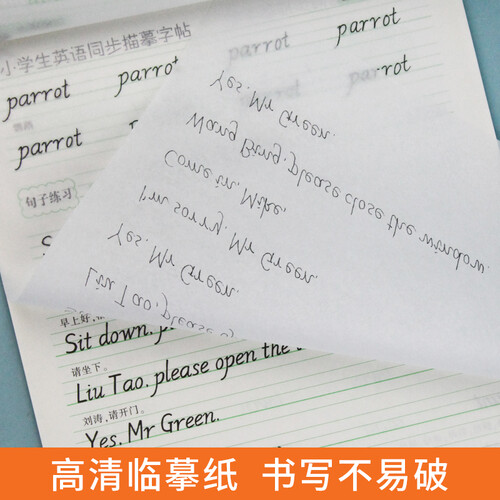 小学生英语同步描摹字帖
parrot parrot parrot parrot
parrot rot
句子练习
Yes, Mr Green.
Wang Bing, please close the window.
Come in, Mike.
I'm sorry, Mr Green.
Yes, Mr Green.
Liu Tao, please
早上好,
Sit down, p
请坐下。
Liu Tao, please open the
刘涛,请开门。
Yes, Mr Green.
高清临摹纸 书写不易破